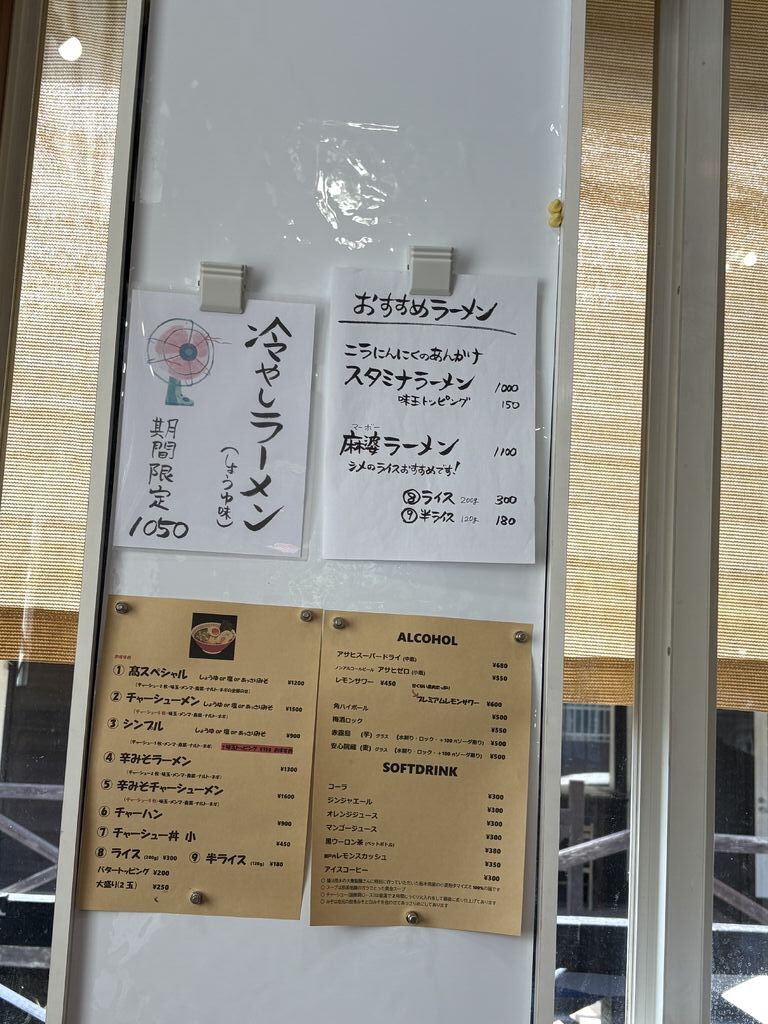 冷やしラーメン
(しょうゆ味)
期間限定
1050
おすすめラーメン
ニラにんにくのあんかけ
スタミナラーメン 1000
味玉トッピング 150
マーボー
麻婆ラーメン 1100
シメのライスおすすめです!
⑧ライス 200g 300
⑨半ライス 120g 180
① 髙スペシャル しょうゆ or 塩 or あっさりみそ ¥1200
② チャーシューメン しょうゆ or 塩 or あっさりみそ ¥1500
③ シンプル しょうゆ or 塩 or あっさりみそ ¥900
+味玉トッピング ¥150 おすすめ
④ 辛みそラーメン ¥1300
⑤ 辛みそチャーシューメン ¥1600
⑥ チャーハン ¥900
⑦ チャーシュー丼 小 ¥450
⑧ ライス (200g) ¥300 ⑨ 半ライス (120g) ¥180
バタートッピング ¥200
大盛り(2玉) ¥250
ALCOHOL
アサヒスーパードライ (中瓶) ¥680
ノンアルコールビール アサヒゼロ (小瓶) ¥550
レモンサワー ¥450
プレミアムレモンサワー ¥600
角ハイボール ¥500
梅酒ロック ¥550
赤霧島 (芋) グラス (水割り・ロック・+100円ソーダ割り) ¥500
安心院蔵 (麦) グラス (水割り・ロック・+100円ソーダ割り) ¥500
SOFTDRINK
コーラ ¥300
ジンジャエール ¥300
オレンジジュース ¥300
マンゴージュース ¥300
黒ウーロン茶 (ペットボトル) ¥380
レモンスカッシュ ¥350
アイスコーヒー ¥300